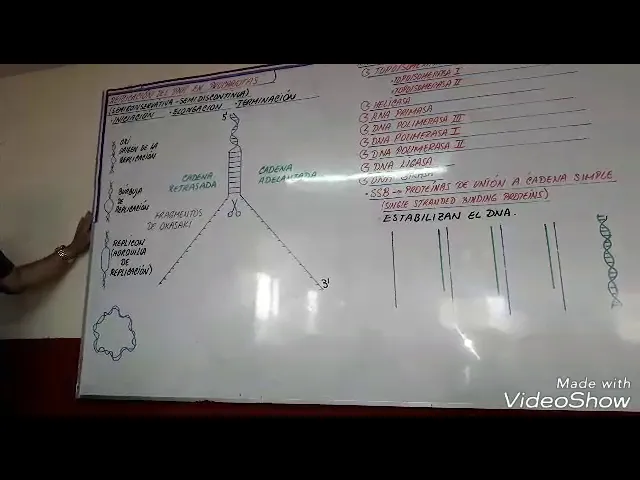 REPLICACIÓN DEL DNA EN PROCARIOTAS
(SEMICONSERVATIVA - SEMIDISCONTINUA)
· INICIACIÓN · ELONGACIÓN · TERMINACIÓN
5'
ORI
ORIGEN DE LA
REPLICACIÓN
BURBUJA
DE
REPLICACIÓN
REPLICON
(HORQUILLA
DE
REPLICACIÓN)
CADENA
RETRASADA
FRAGMENTOS
DE OKASAKI
CADENA
ADELANTADA
3'
· TOPOISOMERASA I
· TOPOISOMERASA II
HELICASA
RNA PRIMASA
DNA POLIMERASA III
DNA POLIMERASA I
DNA POLIMERASA II
DNA LIGASA
DNA
· SSB → PROTEÍNAS DE UNIÓN A CADENA SIMPLE
(SINGLE STRANDED BINDING PROTEINS)
· ESTABILIZAN EL DNA.
Made with
VideoShow